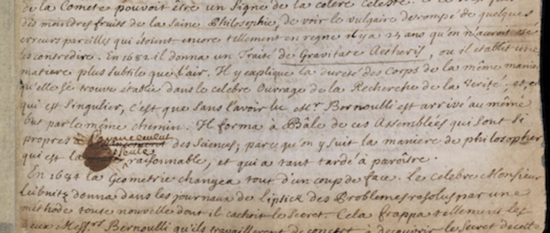 de la Comete pouvoit être un signe de la colere celeste
des moindres fruits de la saine Philosophie, de voir le vulgaire detrompé de quelques
erreurs pareilles qui étoient encore tellement en regne il y a 25 ans qu'on n'auroit osé
les contredire. En 1682 il donna un Traité de Gravitate Aetheris, ou il établit une
matiere plus subtile que l'air. Il y explique la dureté des Corps de la même maniere
qu'elle se trouve établie dans le celebre Ouvrage de la Recherche de la Verité, et, ce
qui est singulier, c'est que sans l'avoir lu Mr. Bernoulli est arrivé au même
but par le même chemin. Il forma à Bâle de ces Assemblées qui sont si
propres à l'avancement des Sciences, parce qu'on y suit la maniere de philosopher
qui est la seule raisonnable, et qui a tant tardé à paroitre.
En 1684 la Geometrie changea tout d'un coup de face. Le celebre Monsieur
Leibnitz donna dans les journaux de Lipsick des Problemes resolus par une
methode toute nouvelle dont il cachoit le secret. Cela frappa tellement les
deux Messrs. Bernoulli qu'ils travaillerent de concert à decouvrir le secret de cette